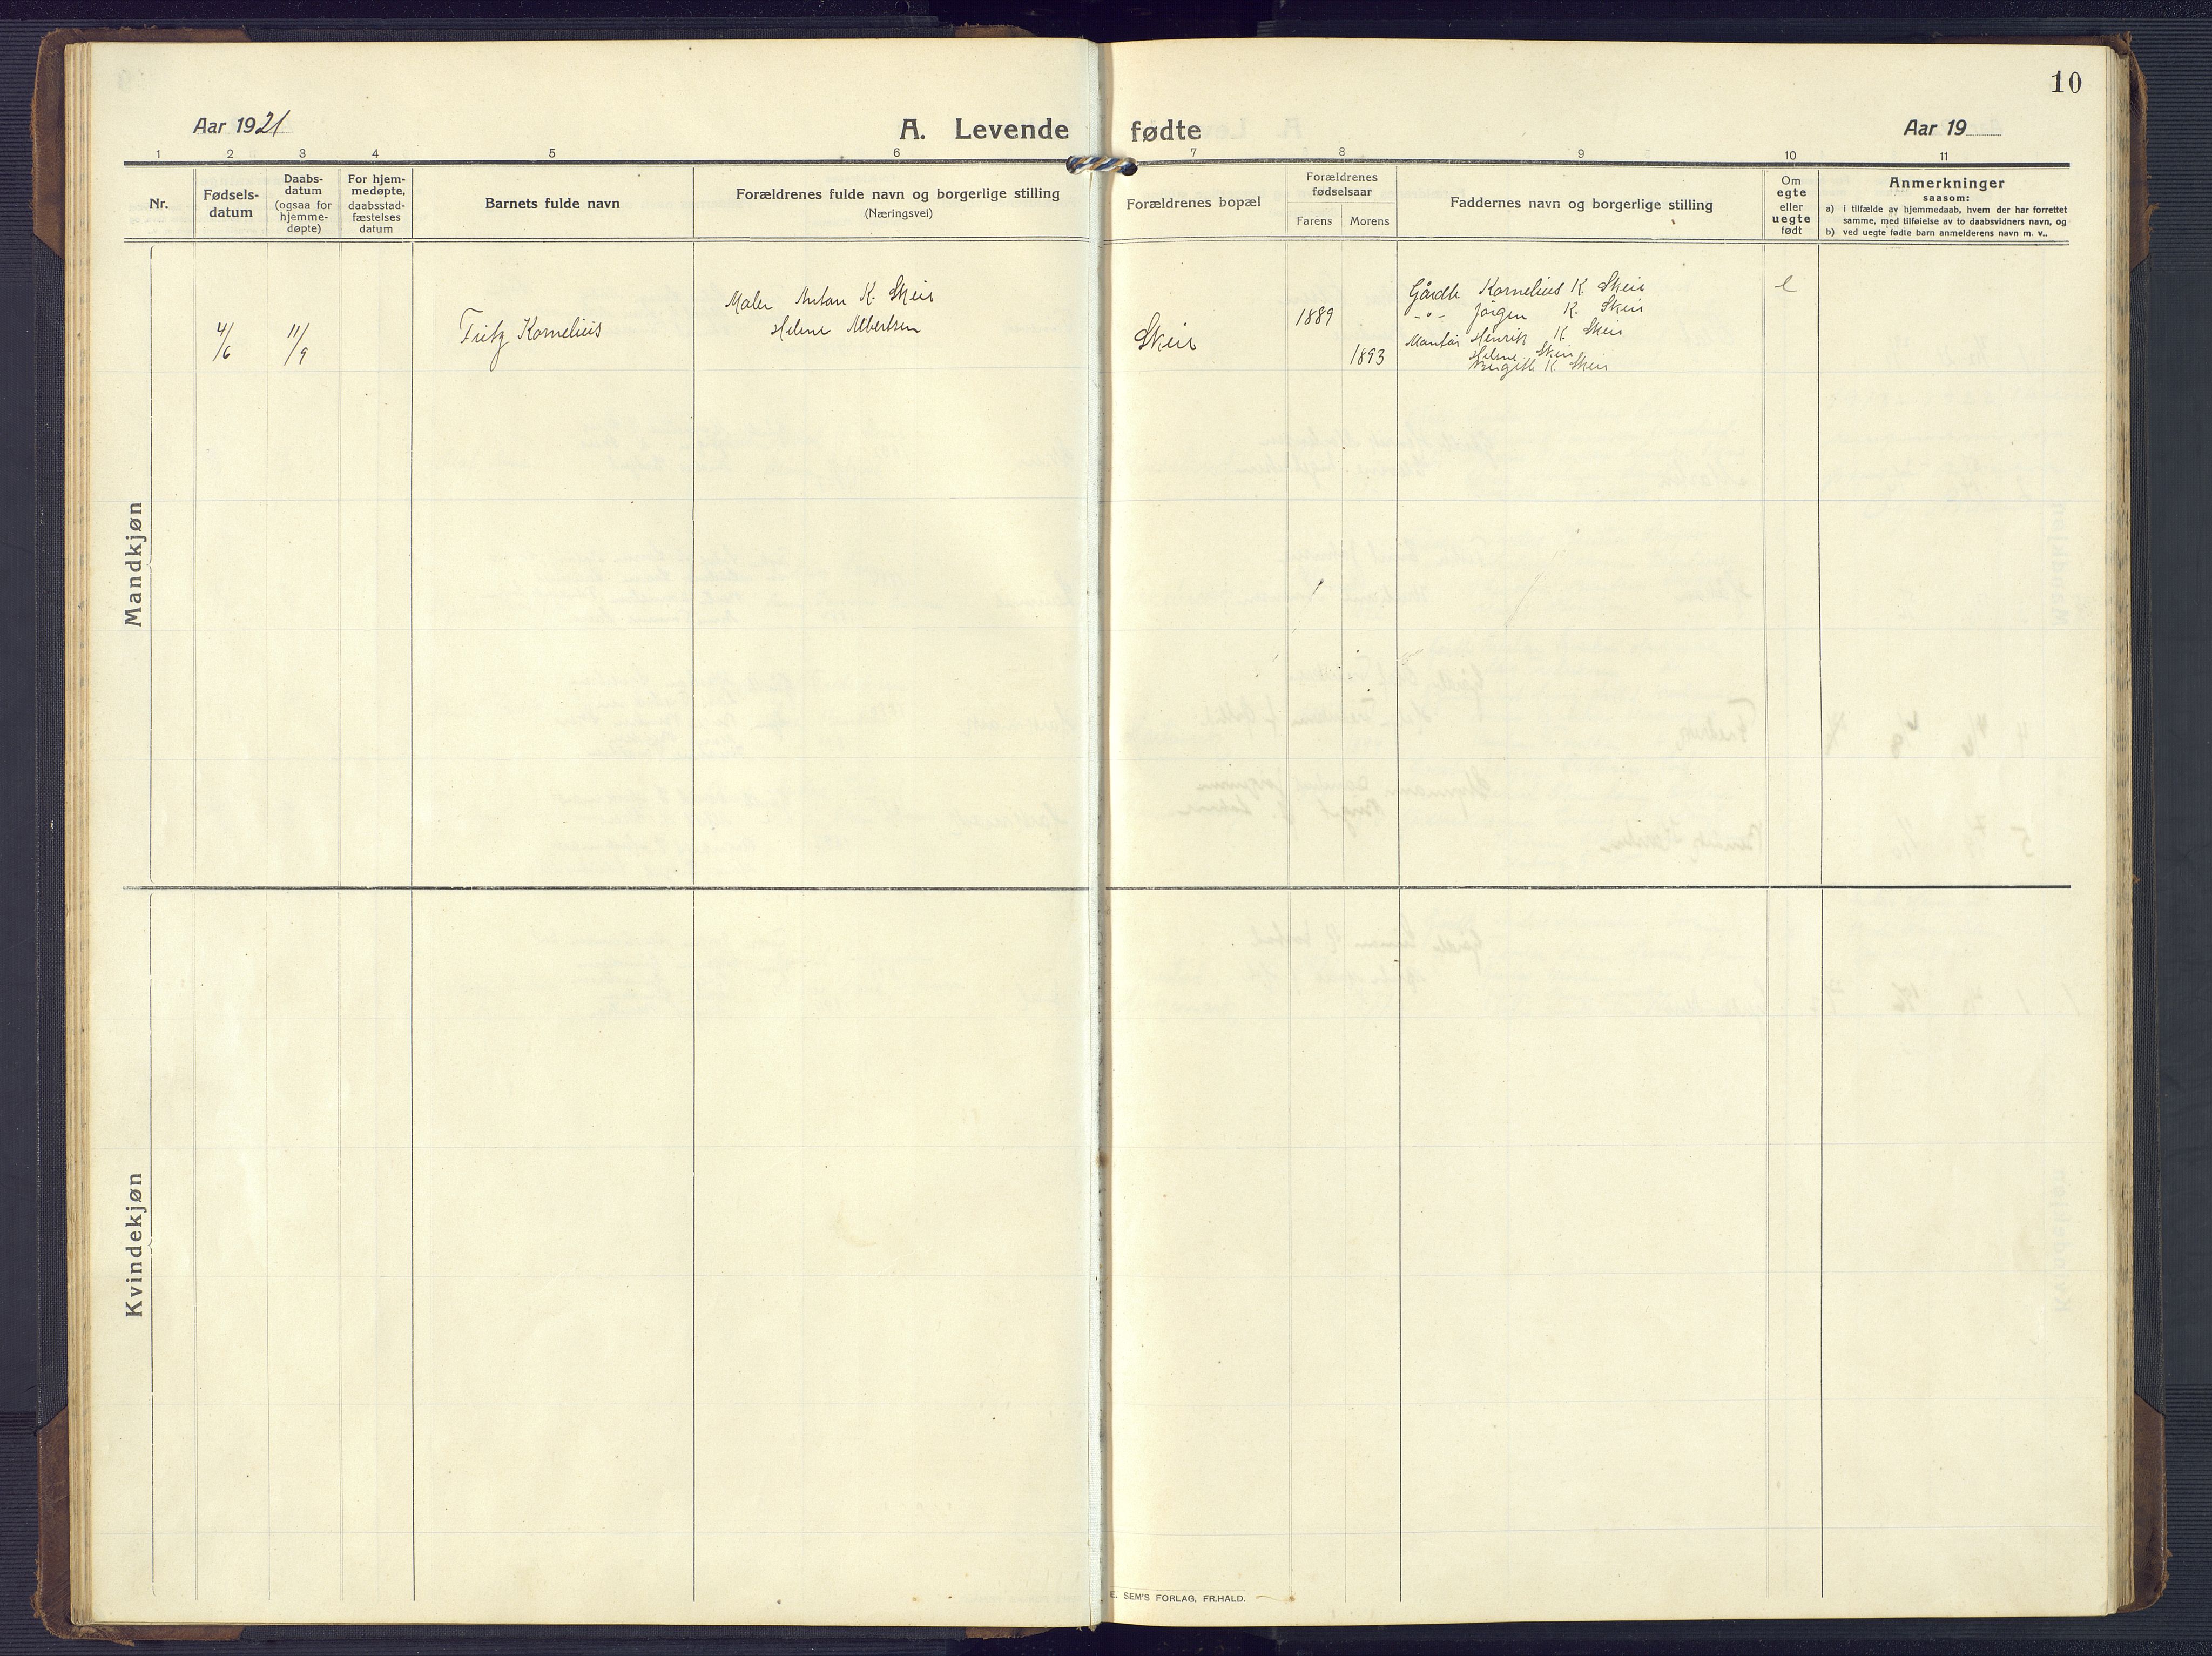 10
Aar 1921
A. Levende fødte
Aar 19
1 2 3 4 5 6 7 8 9 10 11
Nr.
Fødsels-
datum
Daabs-
datum
(ogsaa for
hjemme-
døpte)
For hjem-
medøpte,
daabsstad-
fæstelses
datum
Barnets fulde navn
Forældrenes fulde navn og borgerlige stilling
(Næringsvei)
Forældrenes bopæl
Forældrenes
fødselsaar
Farens
Morens
Faddernes navn og borgerlige stilling
Om
egte
eller
uegte
født
Anmerkninger
saasom:
a) i tilfælde av hjemmedaab, hvem der har forrettet
samme, med tilføielse av to daabsvidners navn, og
b) ved uegte fødte barn anmelderens navn m. v..
Mandkjøn
4/6
11/9
Fritz Kornelius
Maler Anton K. Skeie
Helene Albertsen
Skeie
1889
1893
Gårdb. Kornelius K. Skeie
-"- Jörgen K. Skeie
Henrik K Skeie
Helene Skeie
Birgith K Skeie
e
Kvindekjøn
E. SEM'S FORLAG, FR.HALD.